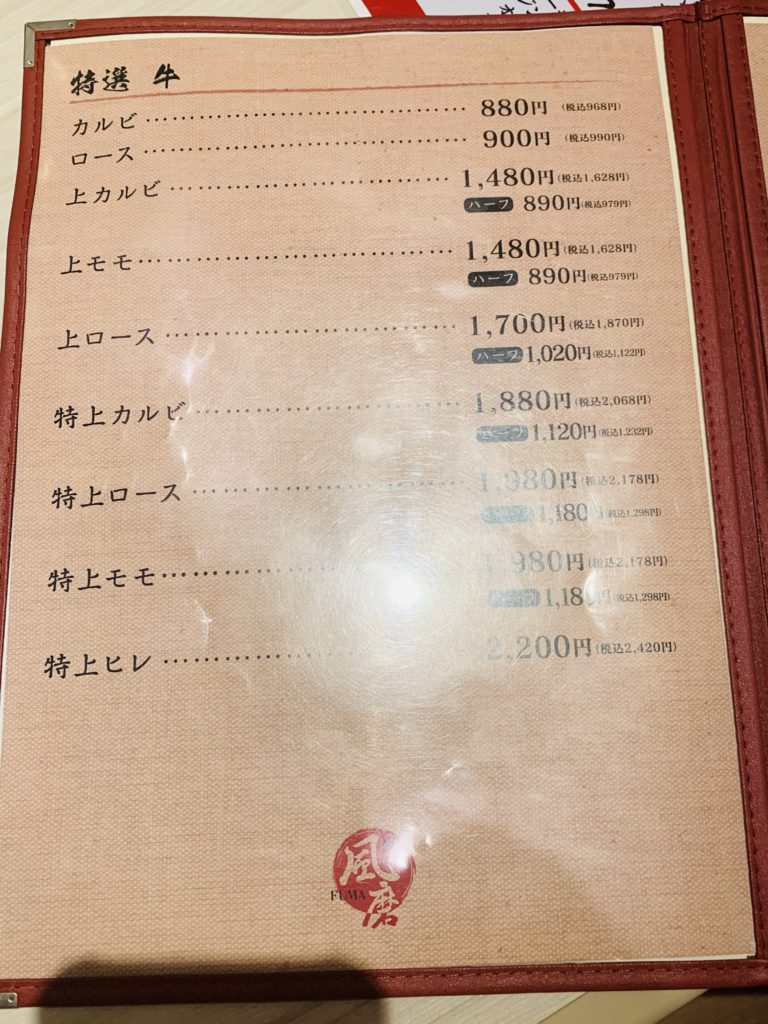 特選 牛
カルビ 880円 (税込968円)
ロース 900円 (税込990円)
上カルビ 1,480円(税込1,628円)
ハーフ 890円(税込979円)
上モモ 1,480円(税込1,628円)
ハーフ 890円(税込979円)
上ロース 1,700円(税込1,870円)
ハーフ 1,020円(税込1,122円)
特上カルビ 1,880円(税込2,068円)
ハーフ 1,120円(税込1,232円)
特上ロース 1,980円(税込2,178円)
ハーフ 1,180円(税込1,298円)
特上モモ 1,980円(税込2,178円)
ハーフ 1,180円(税込1,298円)
特上ヒレ 2,200円(税込2,420円)
風磨
FUMA